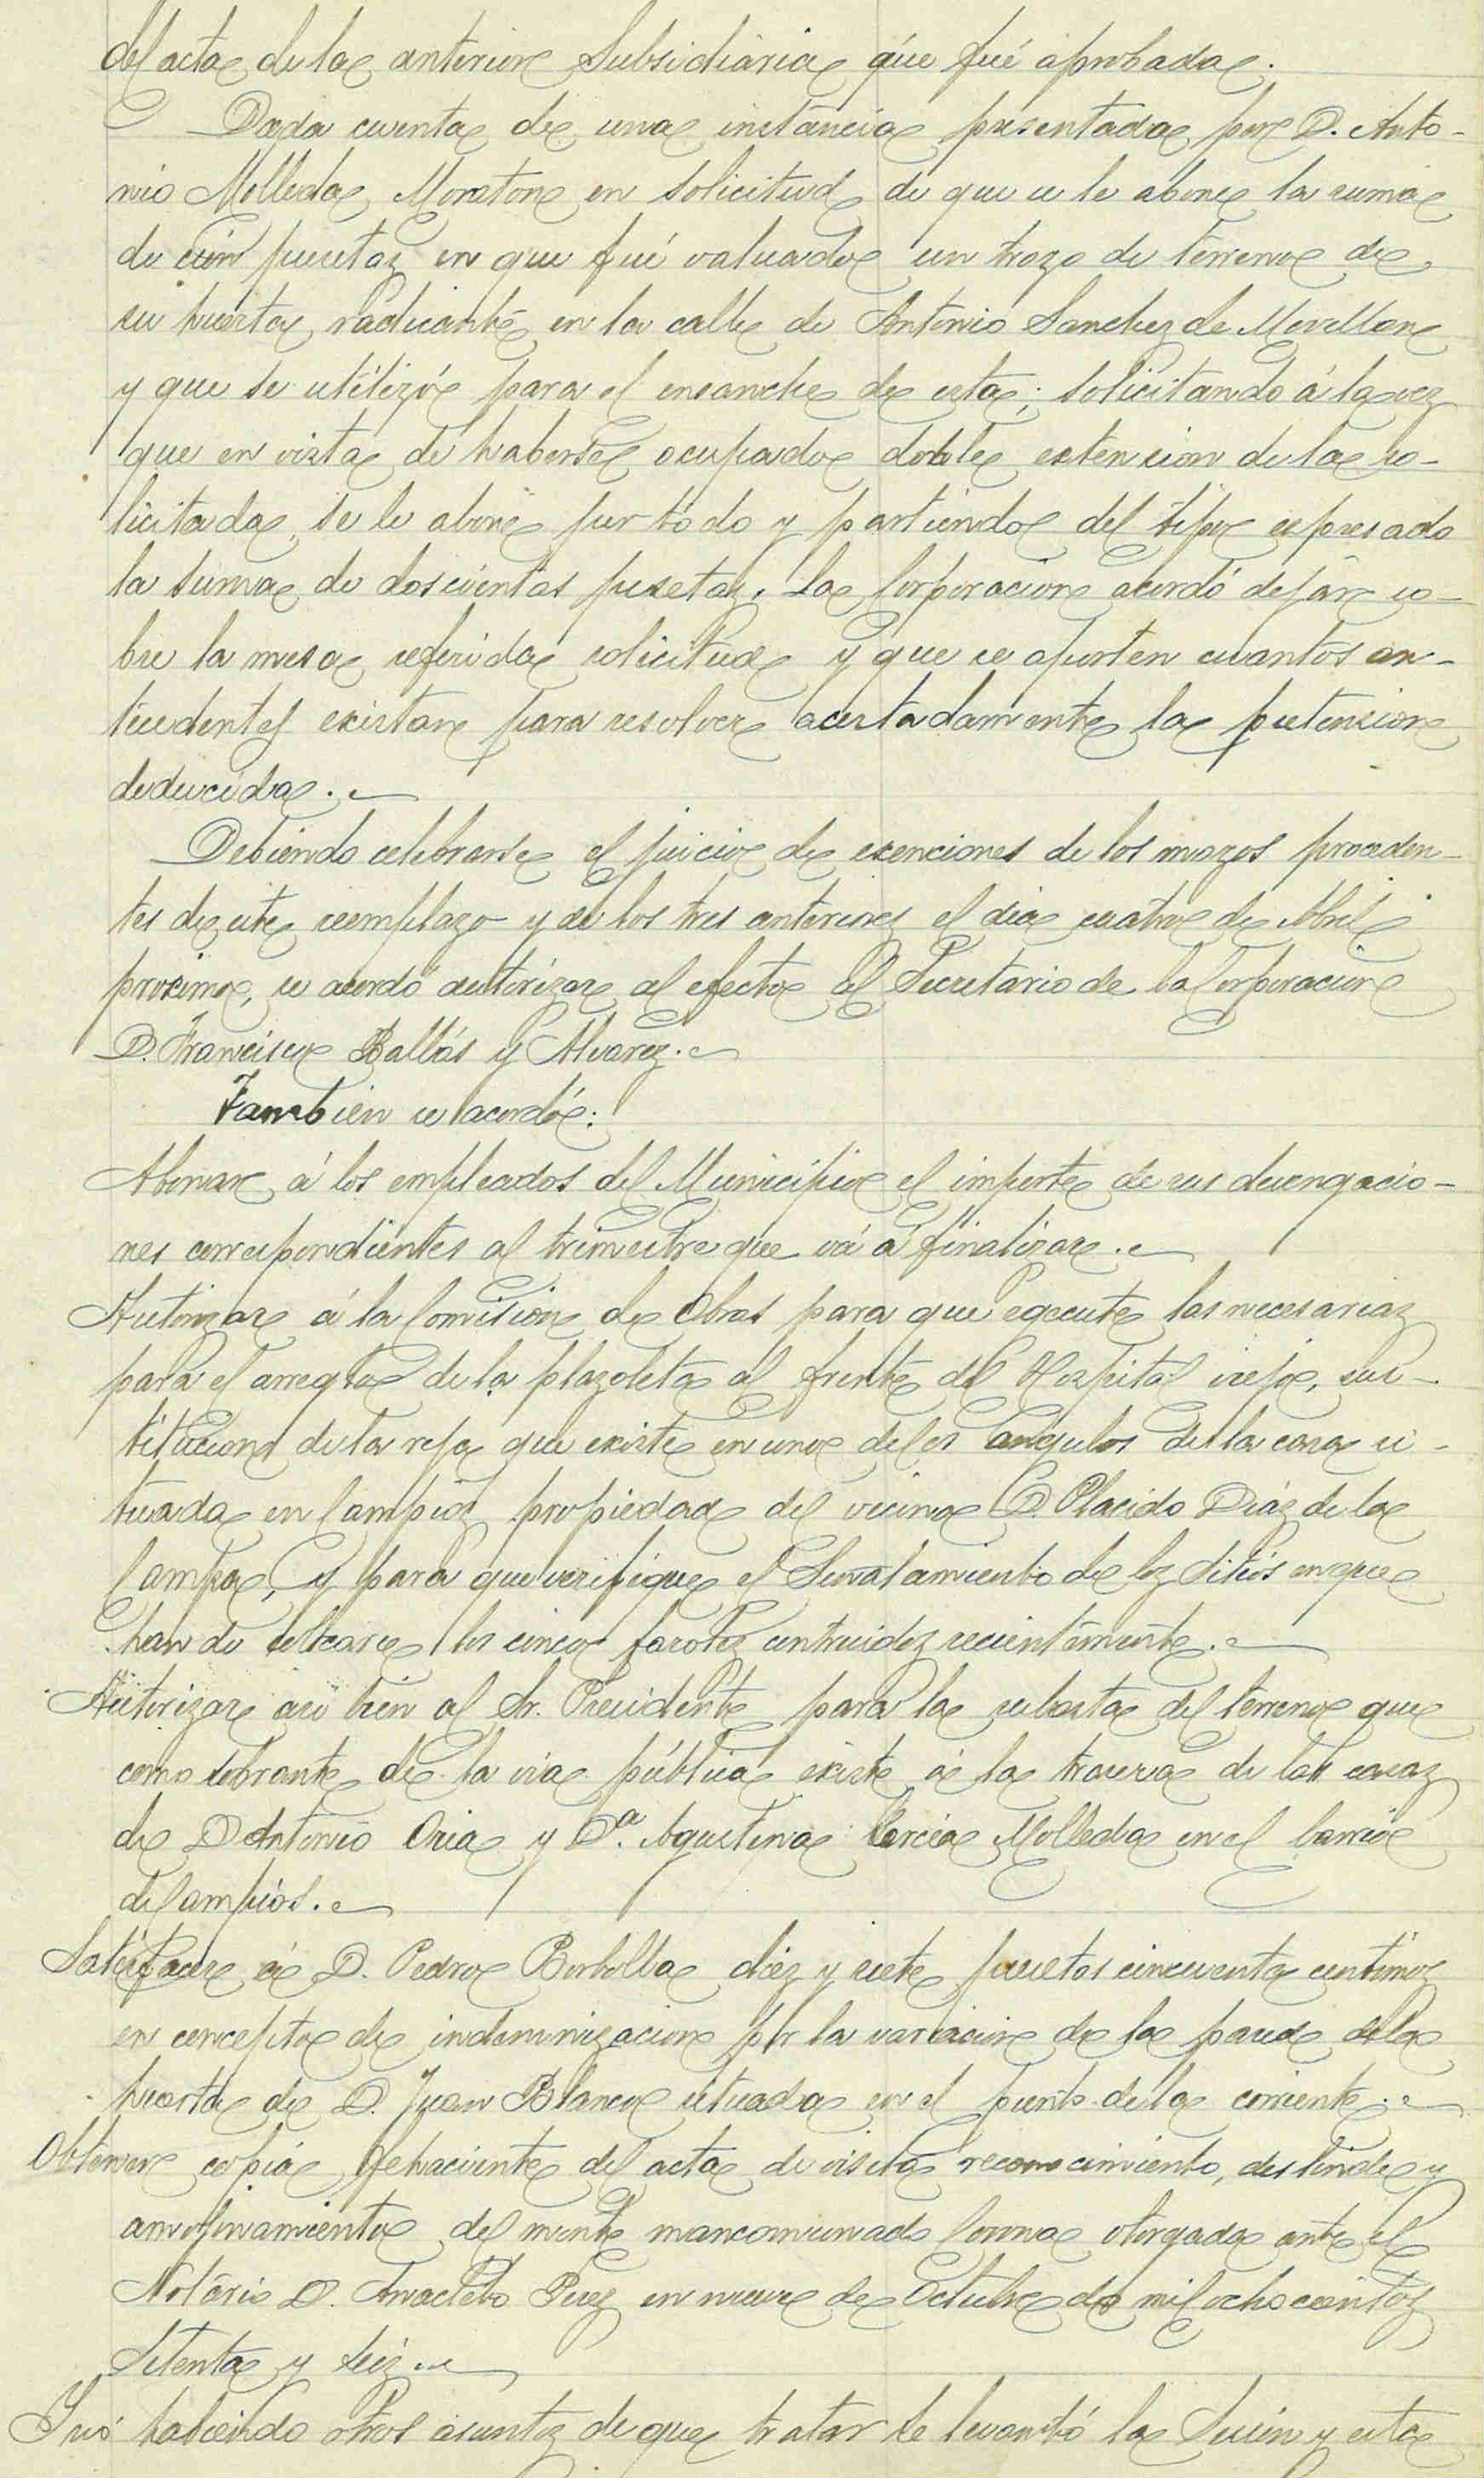 del acta de la anterior Subsidiaria que fué aprobada.
Dada cuenta de una instancia presentada por D. Anto-
nio Molleda Moraton en solicitud de que se le abone la suma
de cien pesetas en que fué valuado un trozo de terreno de
su huerta, radicante en la calle de Antonio Sanchez de Movellan
y que se utilizó para el ensanche de esta; solicitando á la vez
que en vista de haberse ocupado doble extension de la so-
licitada, se le abone por todo y partiendo del tipo espresado
la suma de doscientas pesetas, la Corporacion acordó dejar so-
bre la mesa referida solicitud y que se aporten cuantos an-
tecedentes existan para resolver acertadamente la pretension
deducida.
Debiendo celebrarse el juicio de exenciones de los mozos proceden-
tes de este reemplazo y de los tres anteriores el dia cuatro de Abril
proximo, se acordó autorizar al efecto al Secretario de la Corporacion
D. Francisco Ballás y Alvarez.
Tambien se acordó:
Abonar á los empleados del Municipio el importe de sus devengacio-
nes correspondientes al trimestre que vá á finalizar.
Autorizar á la Comision de Obras para que egecute las necesarias
para el arreglo de la plazoleta al frente del Hospital viejo, sus-
titucion de la reja que existe en uno de los angulos de la casa si-
tuada en Campios propiedad del vecino D. Placido Diáz de la
Campa, y para que verifique el Señalamiento de los Sitios en que
han de colocarse los cinco faroles contruidos recientemente.
Autorizar asi bien al Sr. Presidente para la subasta del terreno que
como sobrante de la via pública existe á la trasera de las casas
de D Antonio Oria y Dª. Agustina Molleda en el barrio
de Campios.
Satisfacer á D. Pedro Borbolla diez y siete pesetas cincuenta centimos
en concepto de indemnizacion por la variacion de la pared de la
huerta de D. Juan Blanco situada en el punto de la corriente.
Obtener copia fehaciente del acta de visita reconocimiento, deslinde y
amojonamiento del monte mancomunado Corona otorgada ante el
Notário D. Anacleto Perez en nueve de Octubre de mil ochocientos
Setenta y seis.
Y no habiendo otros asuntos de que tratar se levantó la Sesión y esta